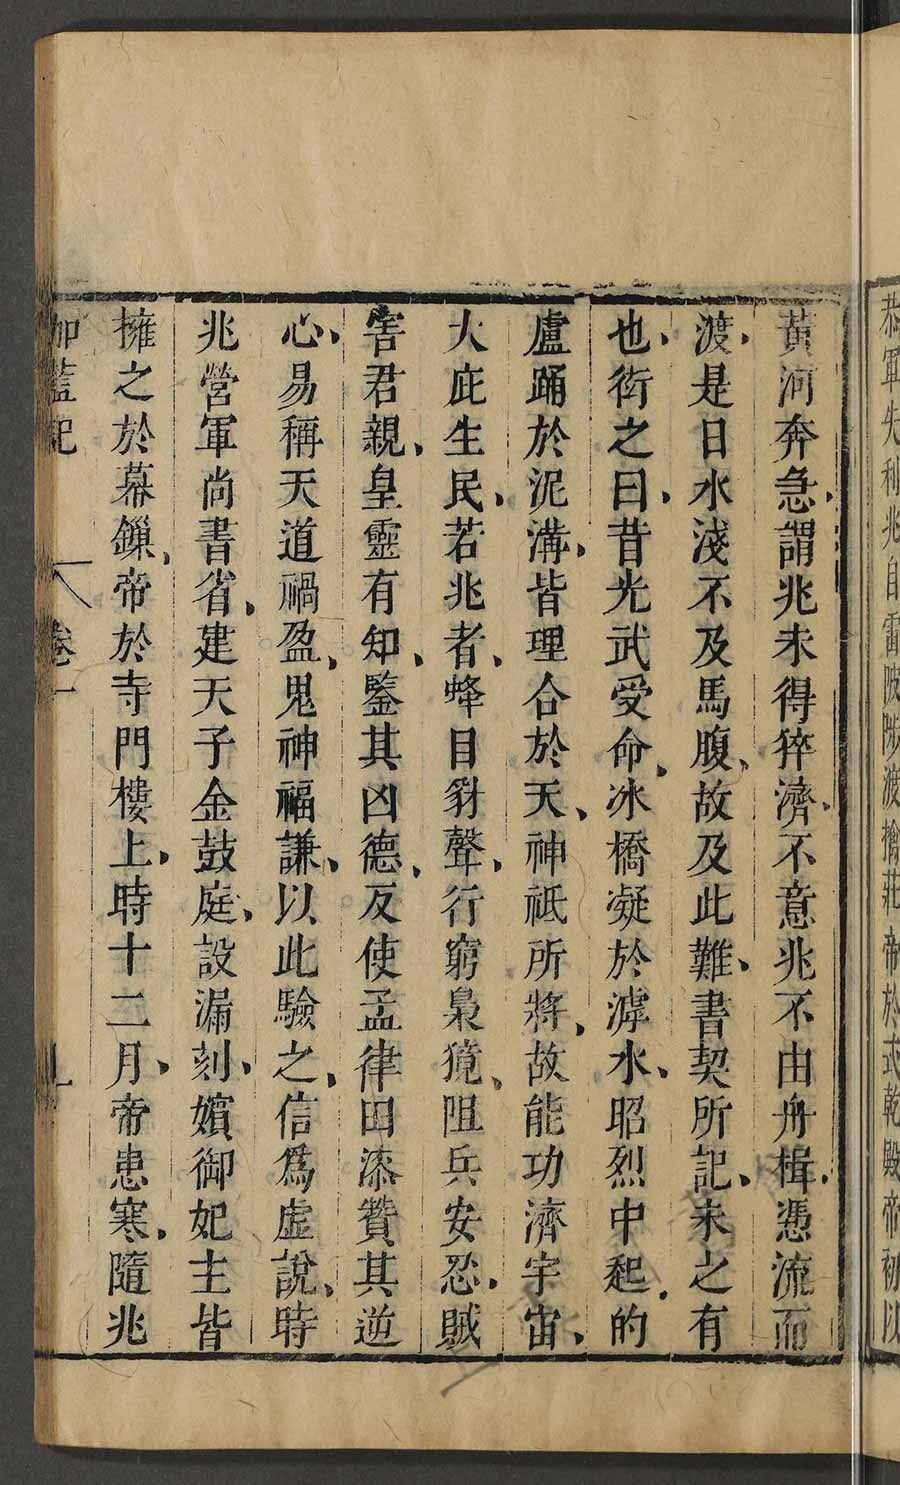 恭軍失利兆自雷陂陟渡擒莊帝於式乾殿帝初以
黃河奔急謂兆未得猝濟不意兆不由舟楫憑流而
渡是日水淺不及馬腹故及此難書契所記未之有
也衒之曰昔光武受命冰橋凝於滹水昭烈中起的
盧踊於泥溝皆理合於天神祇所將故能功濟宇宙
大庇生民若兆者蜂目豺聲行窮梟獍阻兵安忍賊
害君親皇靈有知鑒其凶德反使孟律田漆贊其逆
心易稱天道禍盈鬼神福謙以此驗之信爲虛說時
兆營軍尚書省建天子金鼓庭設漏刻嬪御妃主皆
擁之於幕鏁帝於寺門樓上時十二月帝患寒隨兆
伽藍記 卷一